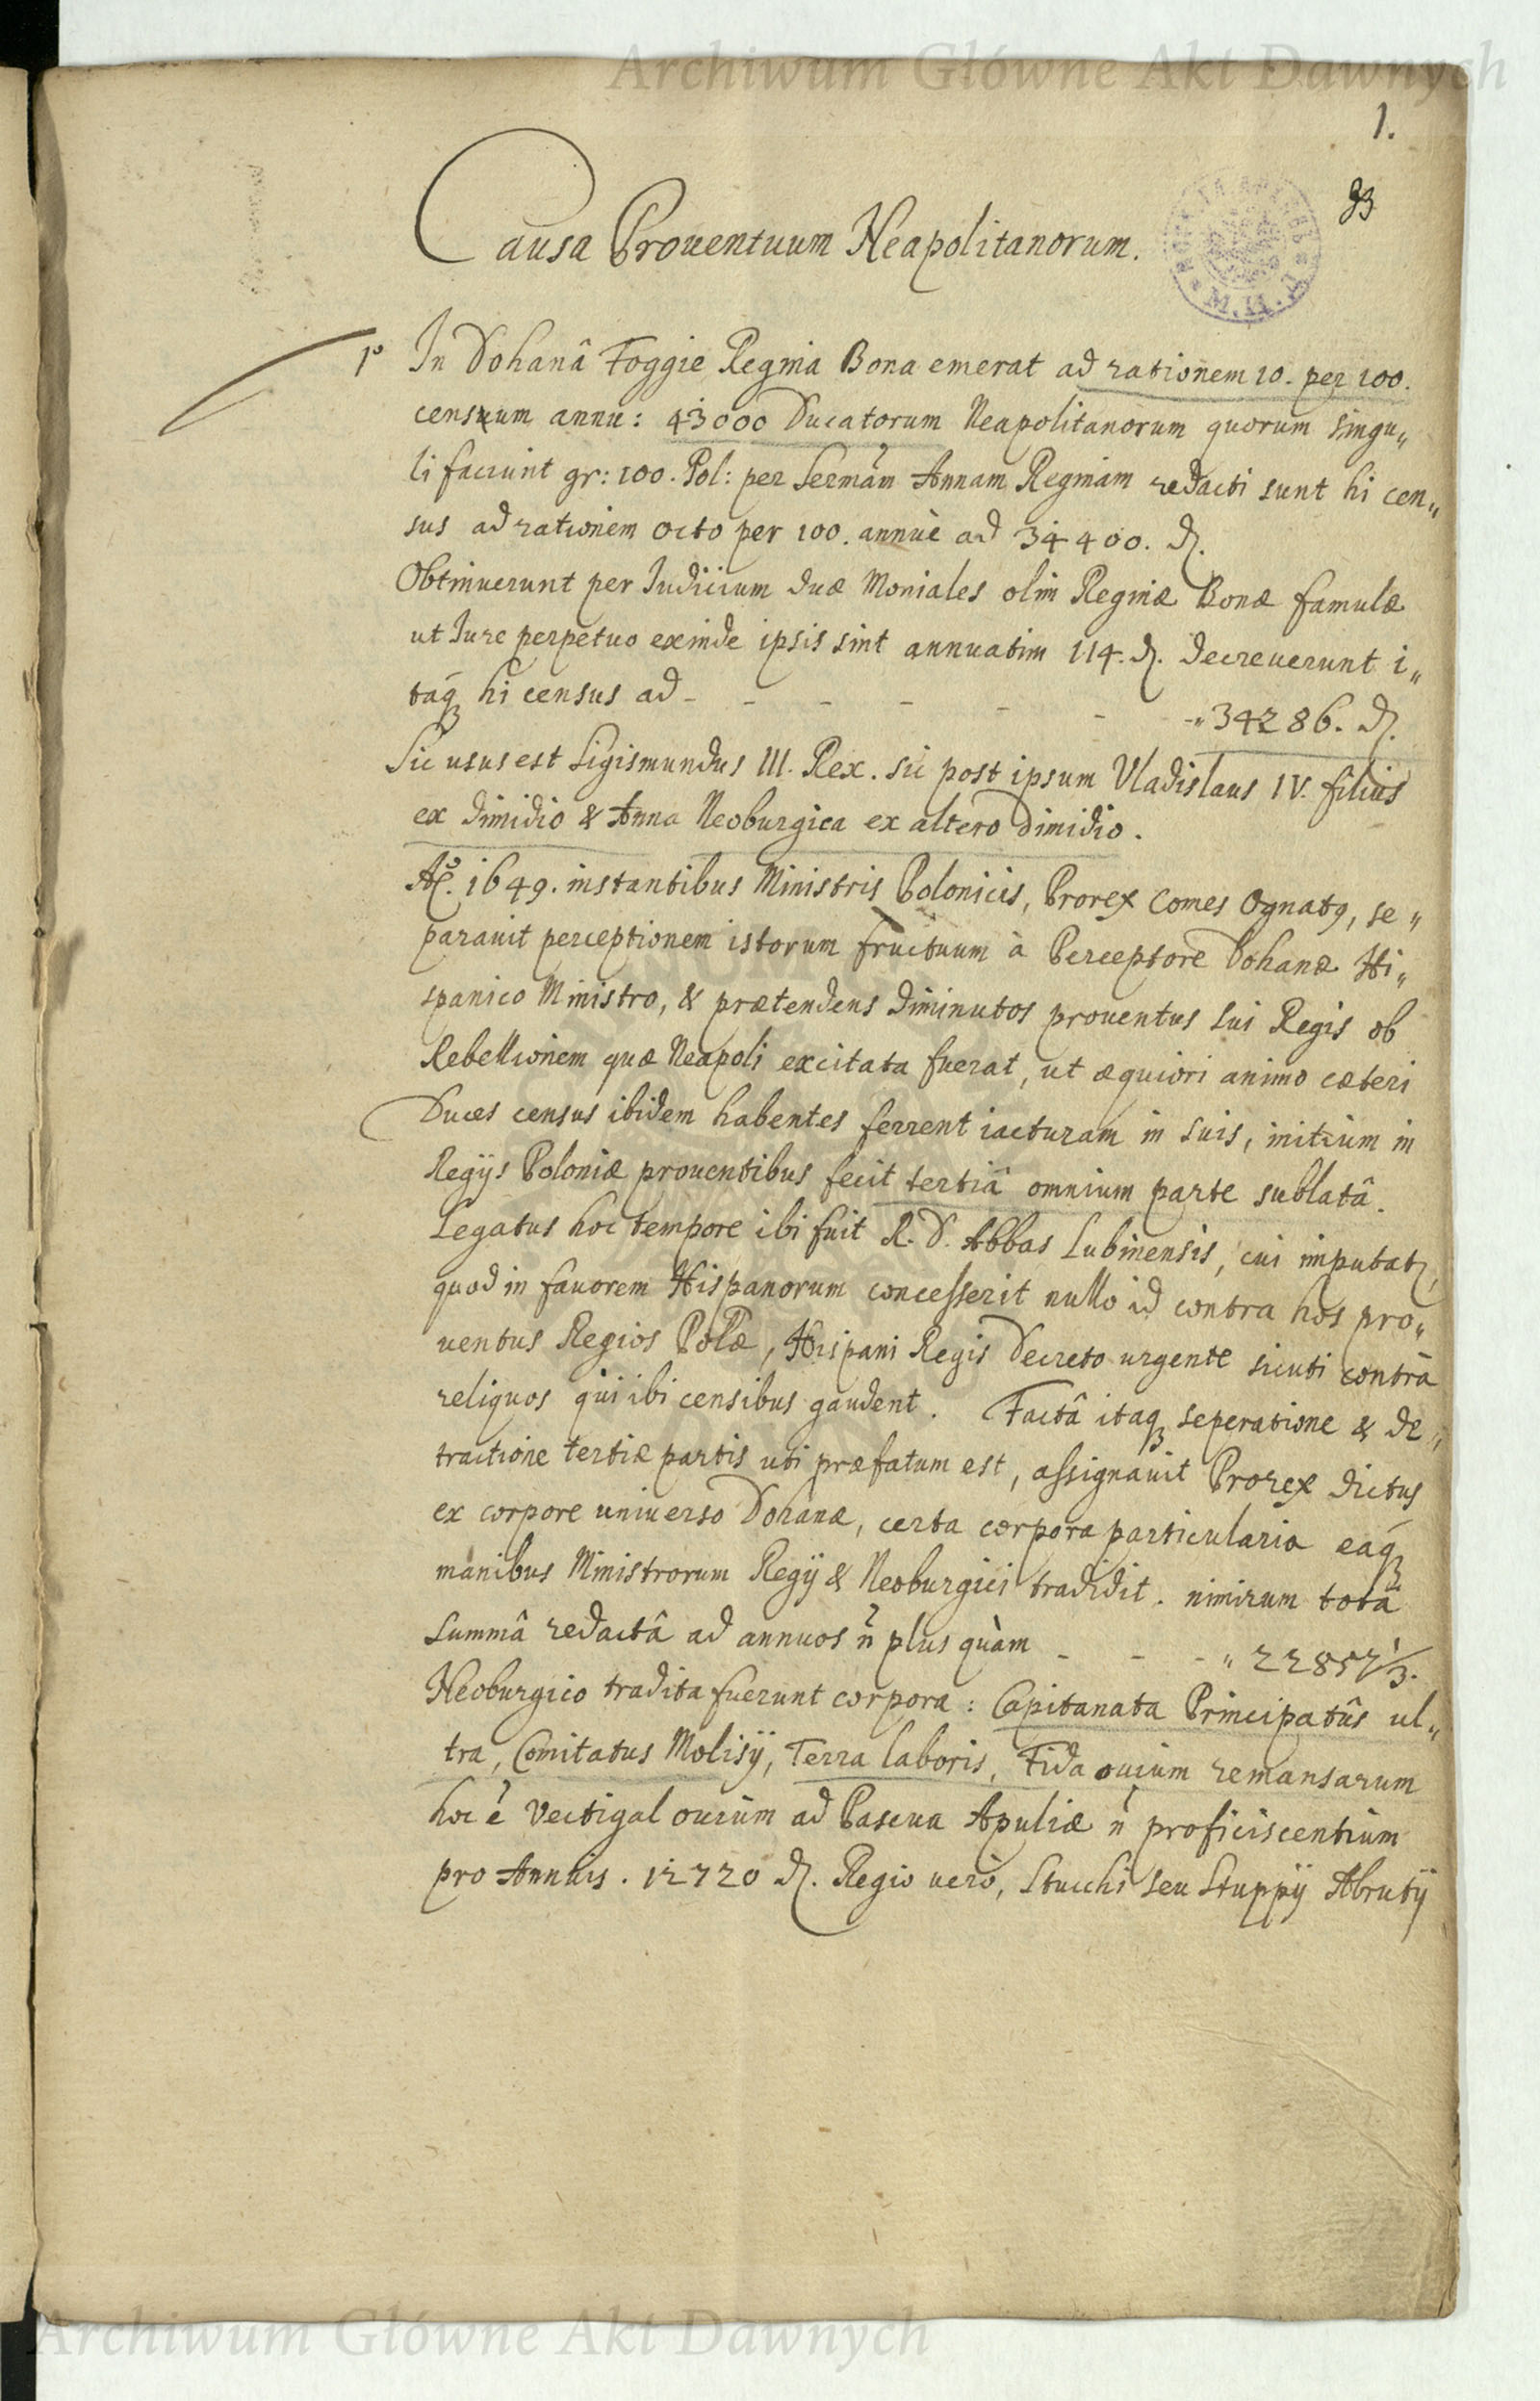 Archiwum Główne Akt Dawnych
1.
93
Causa Prouentuum Neapolitanorum.
1º In Dohanâ Foggie Regina Bona emerat ad rationem 10. per 100.
censuum annu: 43000 Ducatorum Neapolitanorum quorum singu„
li faciunt gr: 100. Pol: per Sermãm Annam Reginam redacti sunt hi cen„
sus ad rationem octo per 100. annuè ad 34400. d.
Obtinuerunt per Iudicium duæ Moniales olim Reginæ Bonæ famulæ
ut Iure perpetuo exinde ipsis sint annuatim 114. d. decreuerunt i„
taq́ hi census ad - - - - - - -„ 34286. d.
Sic usus est Sigismundus III. Rex. sic post ipsum Vladislaus IV. filius
ex dimidio & Anna Neoburgica ex altero dimidio.
Aº. 1649. instantibus Ministris Polonicis, Prorex Comes Ognatꝰ, se„
parauit perceptionem istorum fructuum à Perceptore Dohanæ Hi„
spanico Ministro, & prætendens diminutos prouentus sui Regis ob
Rebellionem quæ Neapoli excitata fuerat, ut æquiori animo cæteri
Duces census ibidem habentes ferrent iacturam in suis, initium in
Regijs Poloniæ prouentibus fecit tertiâ omnium parte sublatâ.
Legatus hoc tempore ibi fuit R. D. Abbas Lubinensis, cui imputatꝛ,
quod in fauorem Hispanorum concesserit nullo id contra hos pro„
uentus Regios Polæ, Hispani Regis Decreto urgente sicuti contrà
reliquos qui ibi censibus gaudent. Factâ itaqꝫ seperatione & de„
tractione tertiæ partis uti præfatum est, assignauit Prorex dictus
ex corpore uniuerso Dohanæ, certa corpora particularia eáqꝫ
manibus Ministrorum Regij & Neoburgici tradidit. nimirum totâ
summâ redactâ ad annuos ñ plus quàm - - -„ 22857 1/3.
Neoburgico tradita fuerunt corpora: Capitanata Principatûs ul„
tra, Comitatus Molisij, Terra laboris, Fida ouium remansarum
hoc ẽ Vectigal ouium ad Pascua Apuliæ ñ proficiscentium
pro Annuis. 12720 d. Regio uerò, Stucchi seu Stuppij Abrutij
Archiwum Główne Akt Dawnych